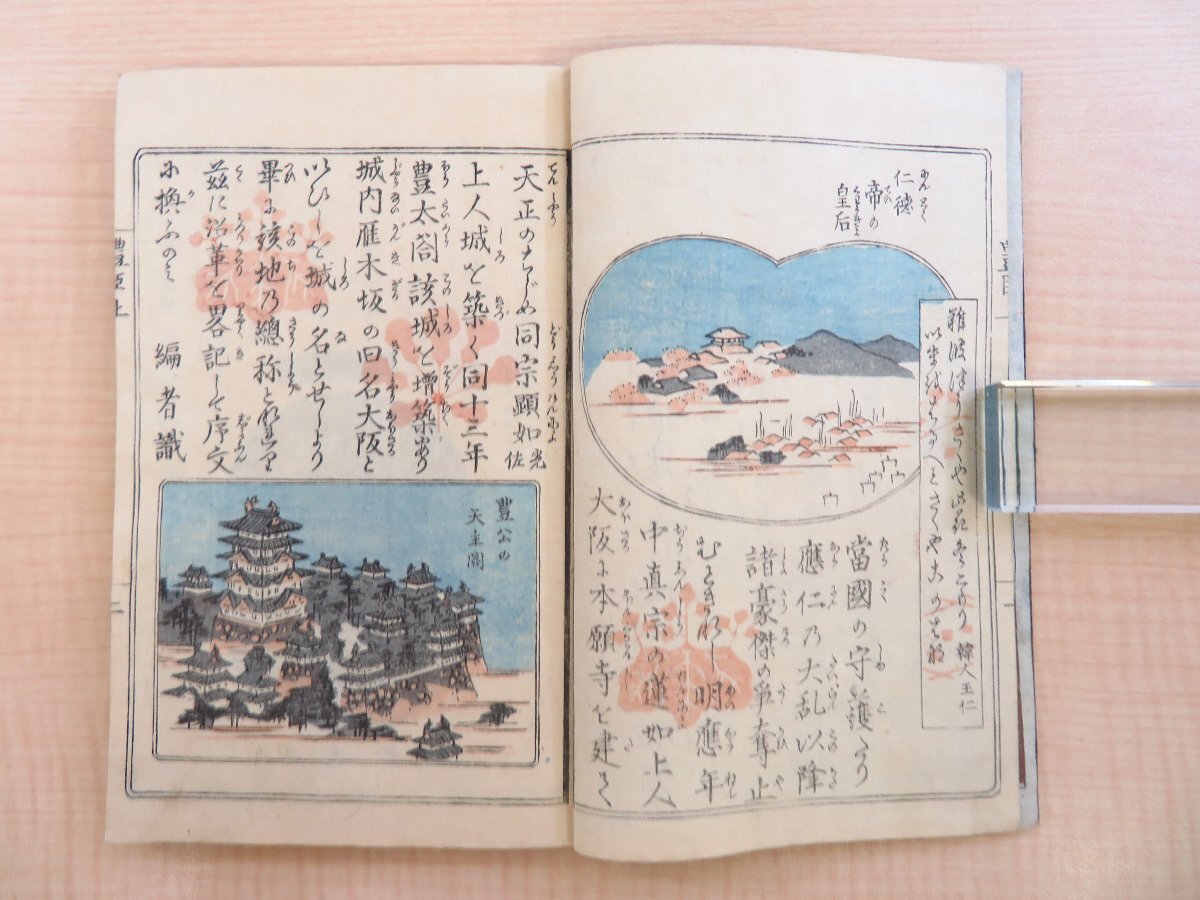 仁徳
帝の
皇后
難波津にさくや此花冬こもり
今を春へとさくやこのはな 韓人王仁
當國の守護たり
應仁乃大乱以降
諸豪傑の争奪止
むときなし明應年
中真宗の蓮如上人
大阪に本願寺を建て
天正のはじめ同宗顕如光佐
上人城を築く同十三年
豊太閤該城を増築あり
城内雁木坂の旧名大阪と
いひしを城の名とせしより
畢に該地乃總称と
茲に沿革を畧記して序文
に換ふのミ 編者識
豊公の
天主閣